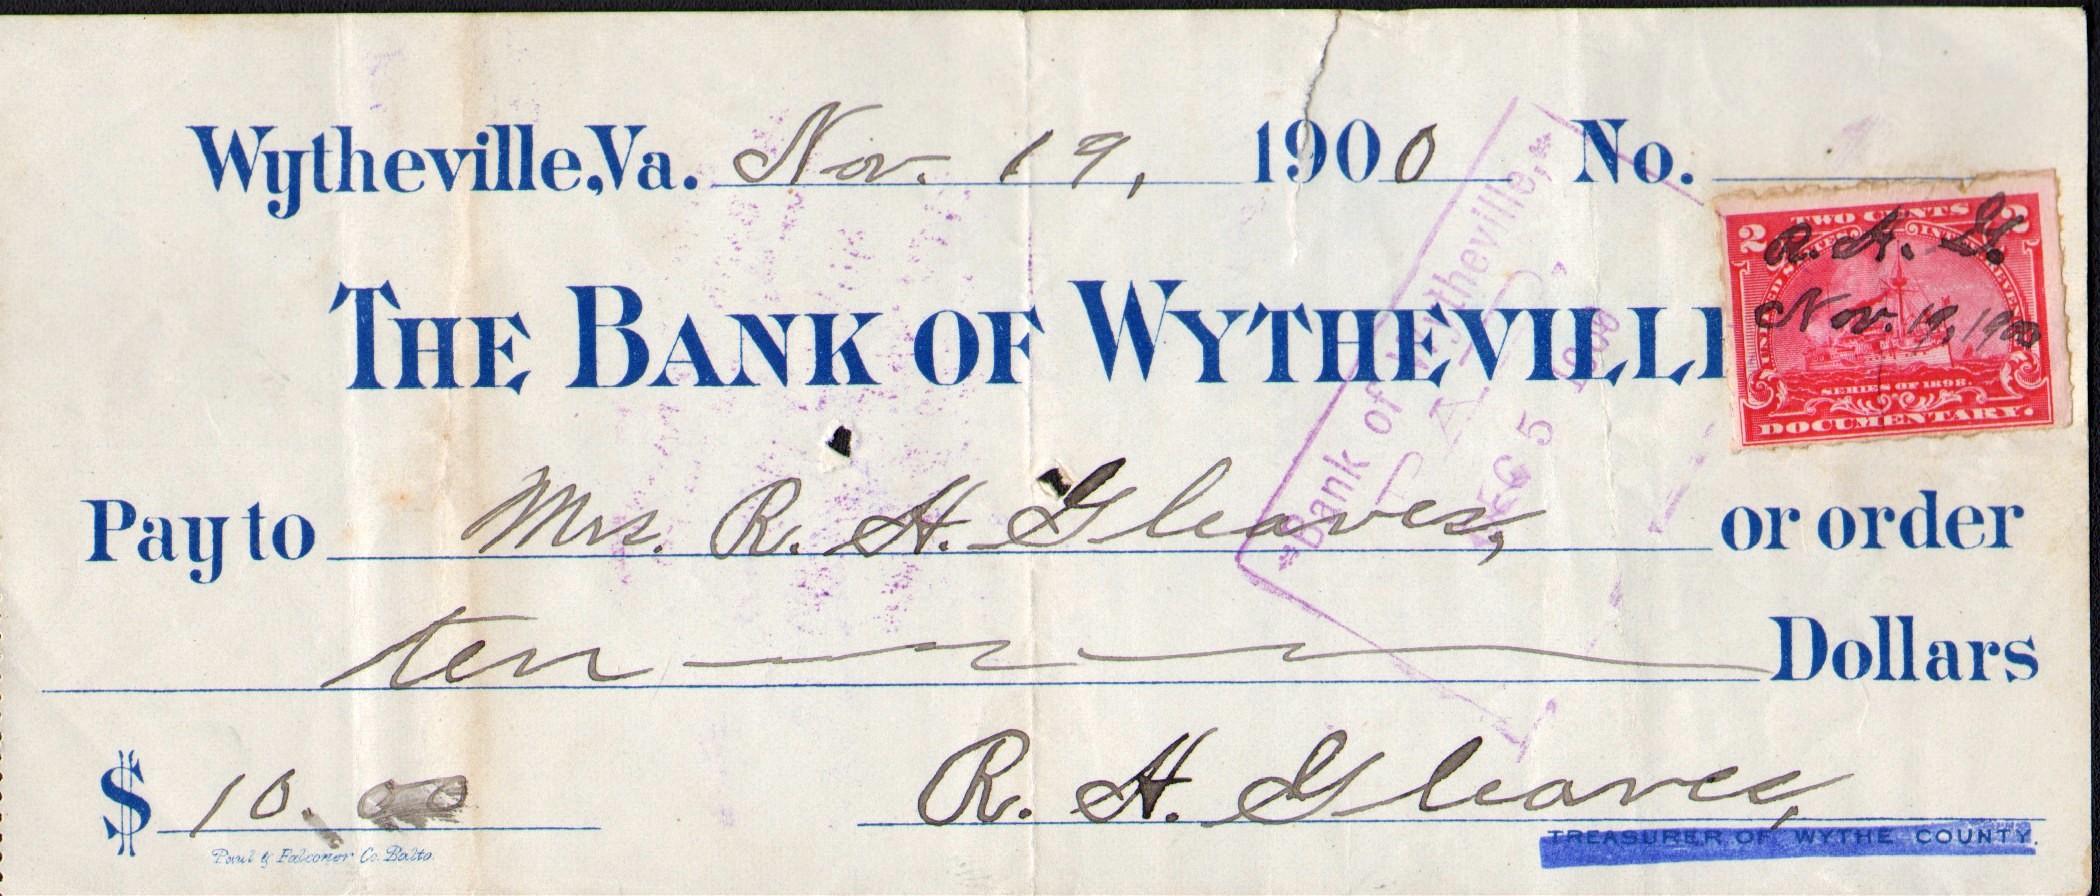 Wytheville, Va. Nov. 19, 1900 No.
TWO CENTS
2 2
UNITED STATES INTERNAL REVENUE
R. H. G.
Nov. 19, 1900
SERIES OF 1898.
DOCUMENTARY.
THE BANK OF WYTHEVILLE
*Bank of Wytheville,*
PAID
DEC 5 1900
Pay to Mrs. R. H. Gleaves, or order
ten Dollars
$ 10. 00
R. H. Gleaves,
TREASURER OF WYTHE COUNTY.
Paul & Falconer Co. Balto.